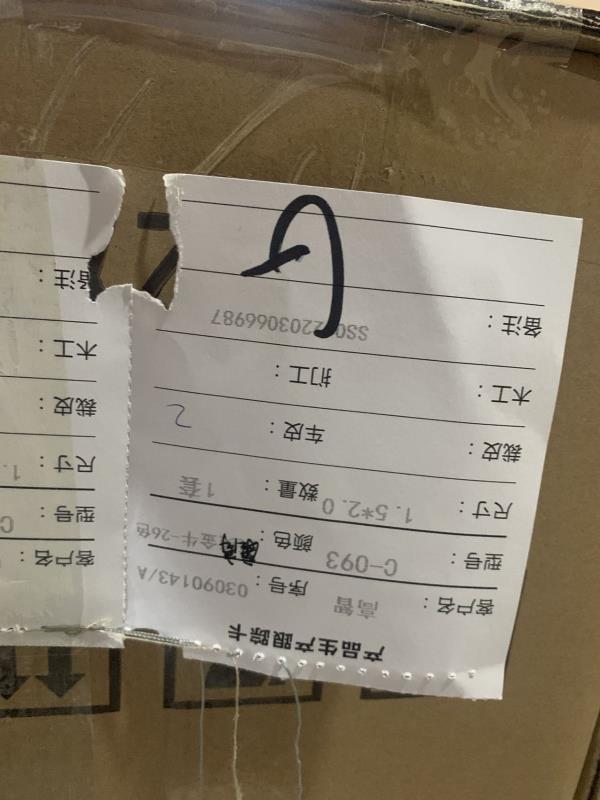 产品生产跟踪卡
客户名： 高智 序号：03090143/A
型号： C-093 颜色： 金牛-26色
尺寸： 1.5*2.0 数量： 1套
裁皮： 车皮： 2
木工： 扪工：
备注： SS02203066987
客户名：
型号： C
尺寸： 1.
裁皮：
木工：
备注：